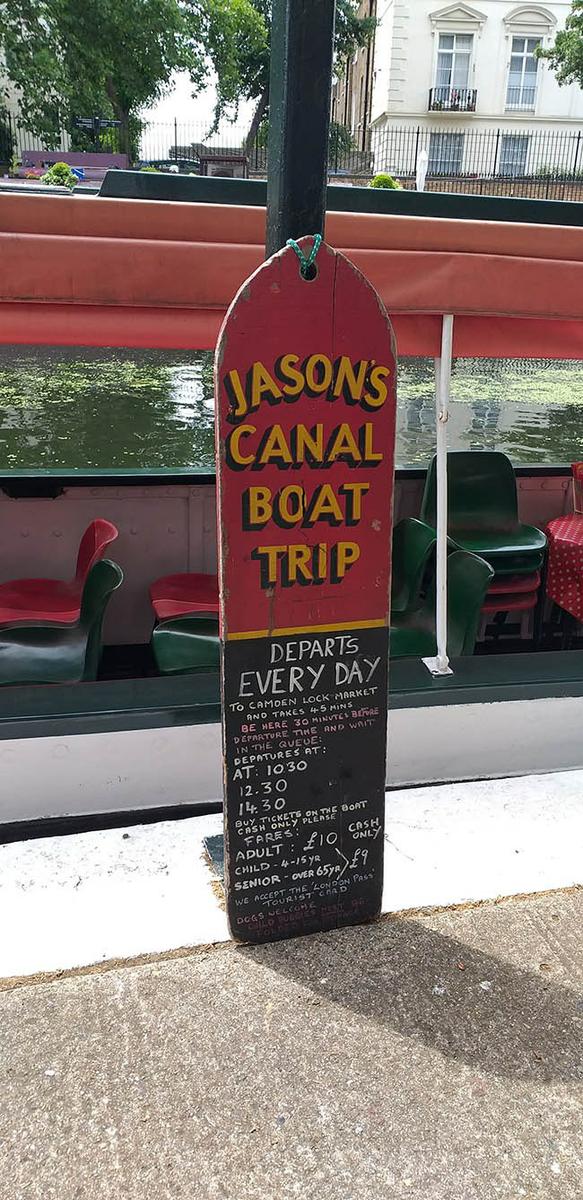 JASON'S
CANAL
BOAT
TRIP
DEPARTS
EVERY DAY
TO CAMDEN LOCK MARKET
AND TAKES 45 MINS
BE HERE 30 MINUTES BEFORE
DEPARTURE TIME AND WAIT
IN THE QUEUE:
DEPATURES AT:
AT: 10 30
12.30
14.30
BUY TICKETS ON THE BOAT
CASH ONLY PLEASE
FARES:
ADULT: £10 CASH ONLY
CHILD - 4-15 YR
SENIOR - OVER 65 YR £9
WE ACCEPT THE 'LONDON PASS'
TOURIST CARD
DOGS WELCOME
CHILD BUGGIES MUST BE
FOLDED